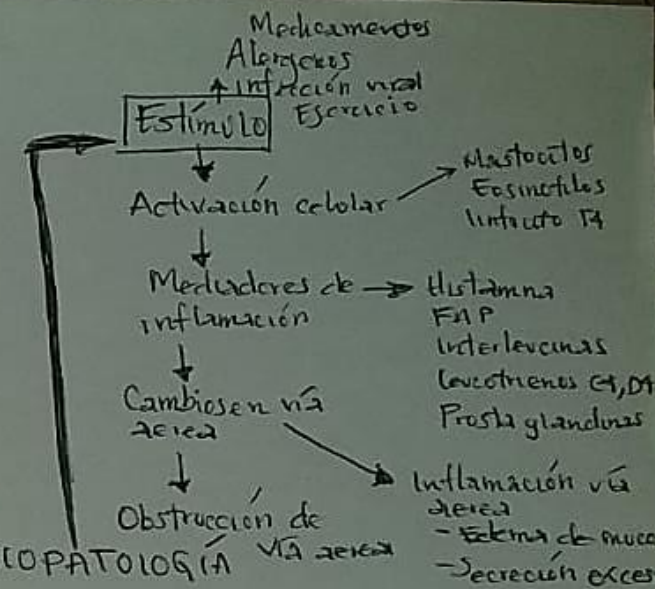 Medicamentos
Alergenos
Infección viral
Ejercicio
Estímulo
Activación celular
Mastocitos
Eosinofilos
linfocito T4
Mediadores de
inflamación
Histamina
FAP
Interleucinas
leucotrienos C4, D4
Prostaglandinas
Cambios en vía
aerea
Inflamación vía
aerea
- Edema de muco
- Secreción exces
Obstrucción de
vía aerea
COPATOLOGÍA